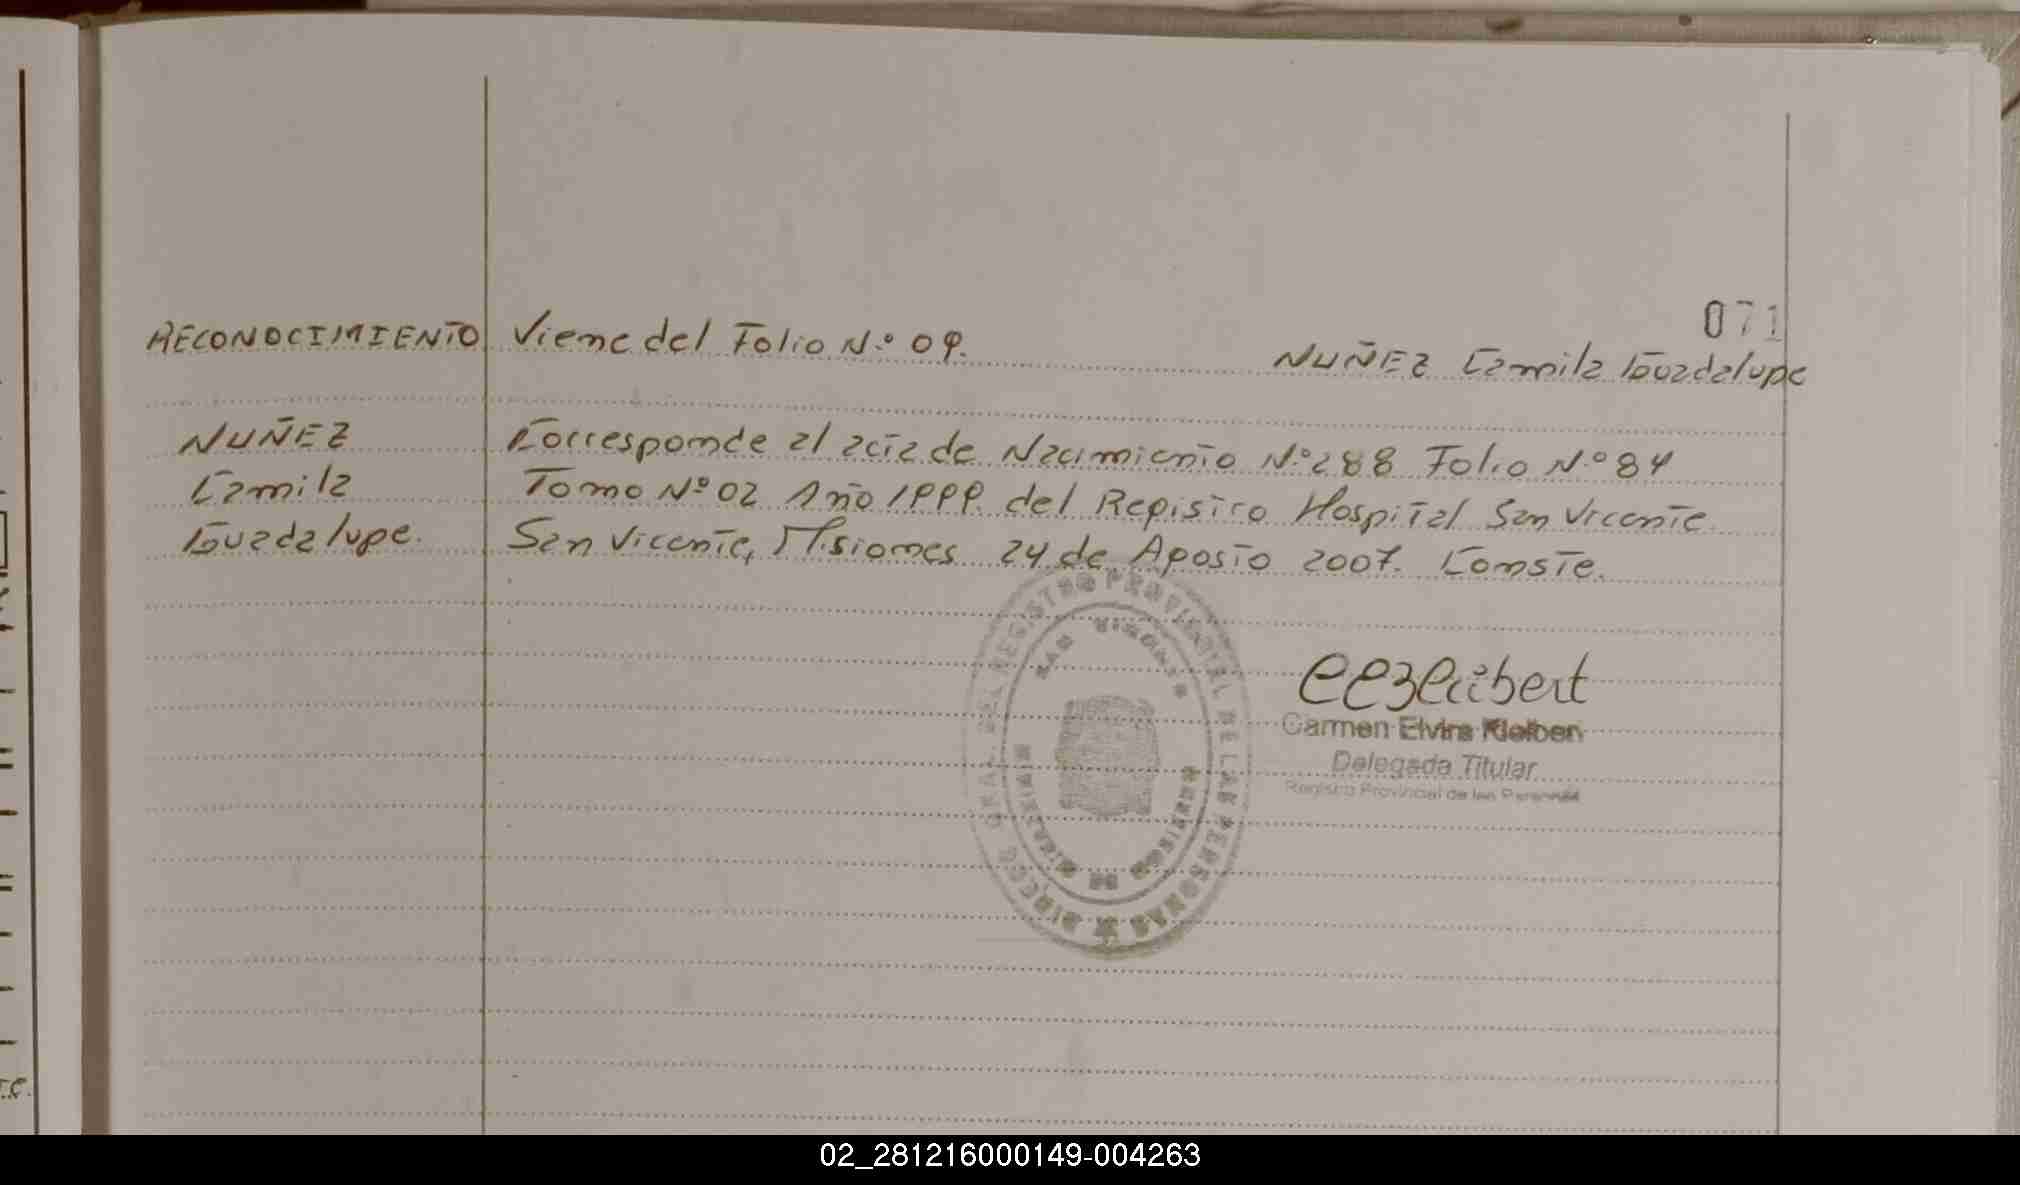 071
RECONOCIMIENTO Viene del Folio N.º 09. NUÑEZ Camila Guadalupe
NUÑEZ Corresponde al acta de Nacimiento N.º 288 Folio N.º 84
Camila Tomo Nº 02 Año 1999. del Registro Hospital San Vicente
Guadalupe. San Vicente, Misiones 24 de Agosto 2007. Conste.
DIRECC. GRAL. DEL REGISTRO PROVINCIAL DE LAS PERSONAS
SAN VICENTE
MISIONES
Carmen Elvira
Delegada Titular
Registro Provincial de las Personas
02_281216000149-004263